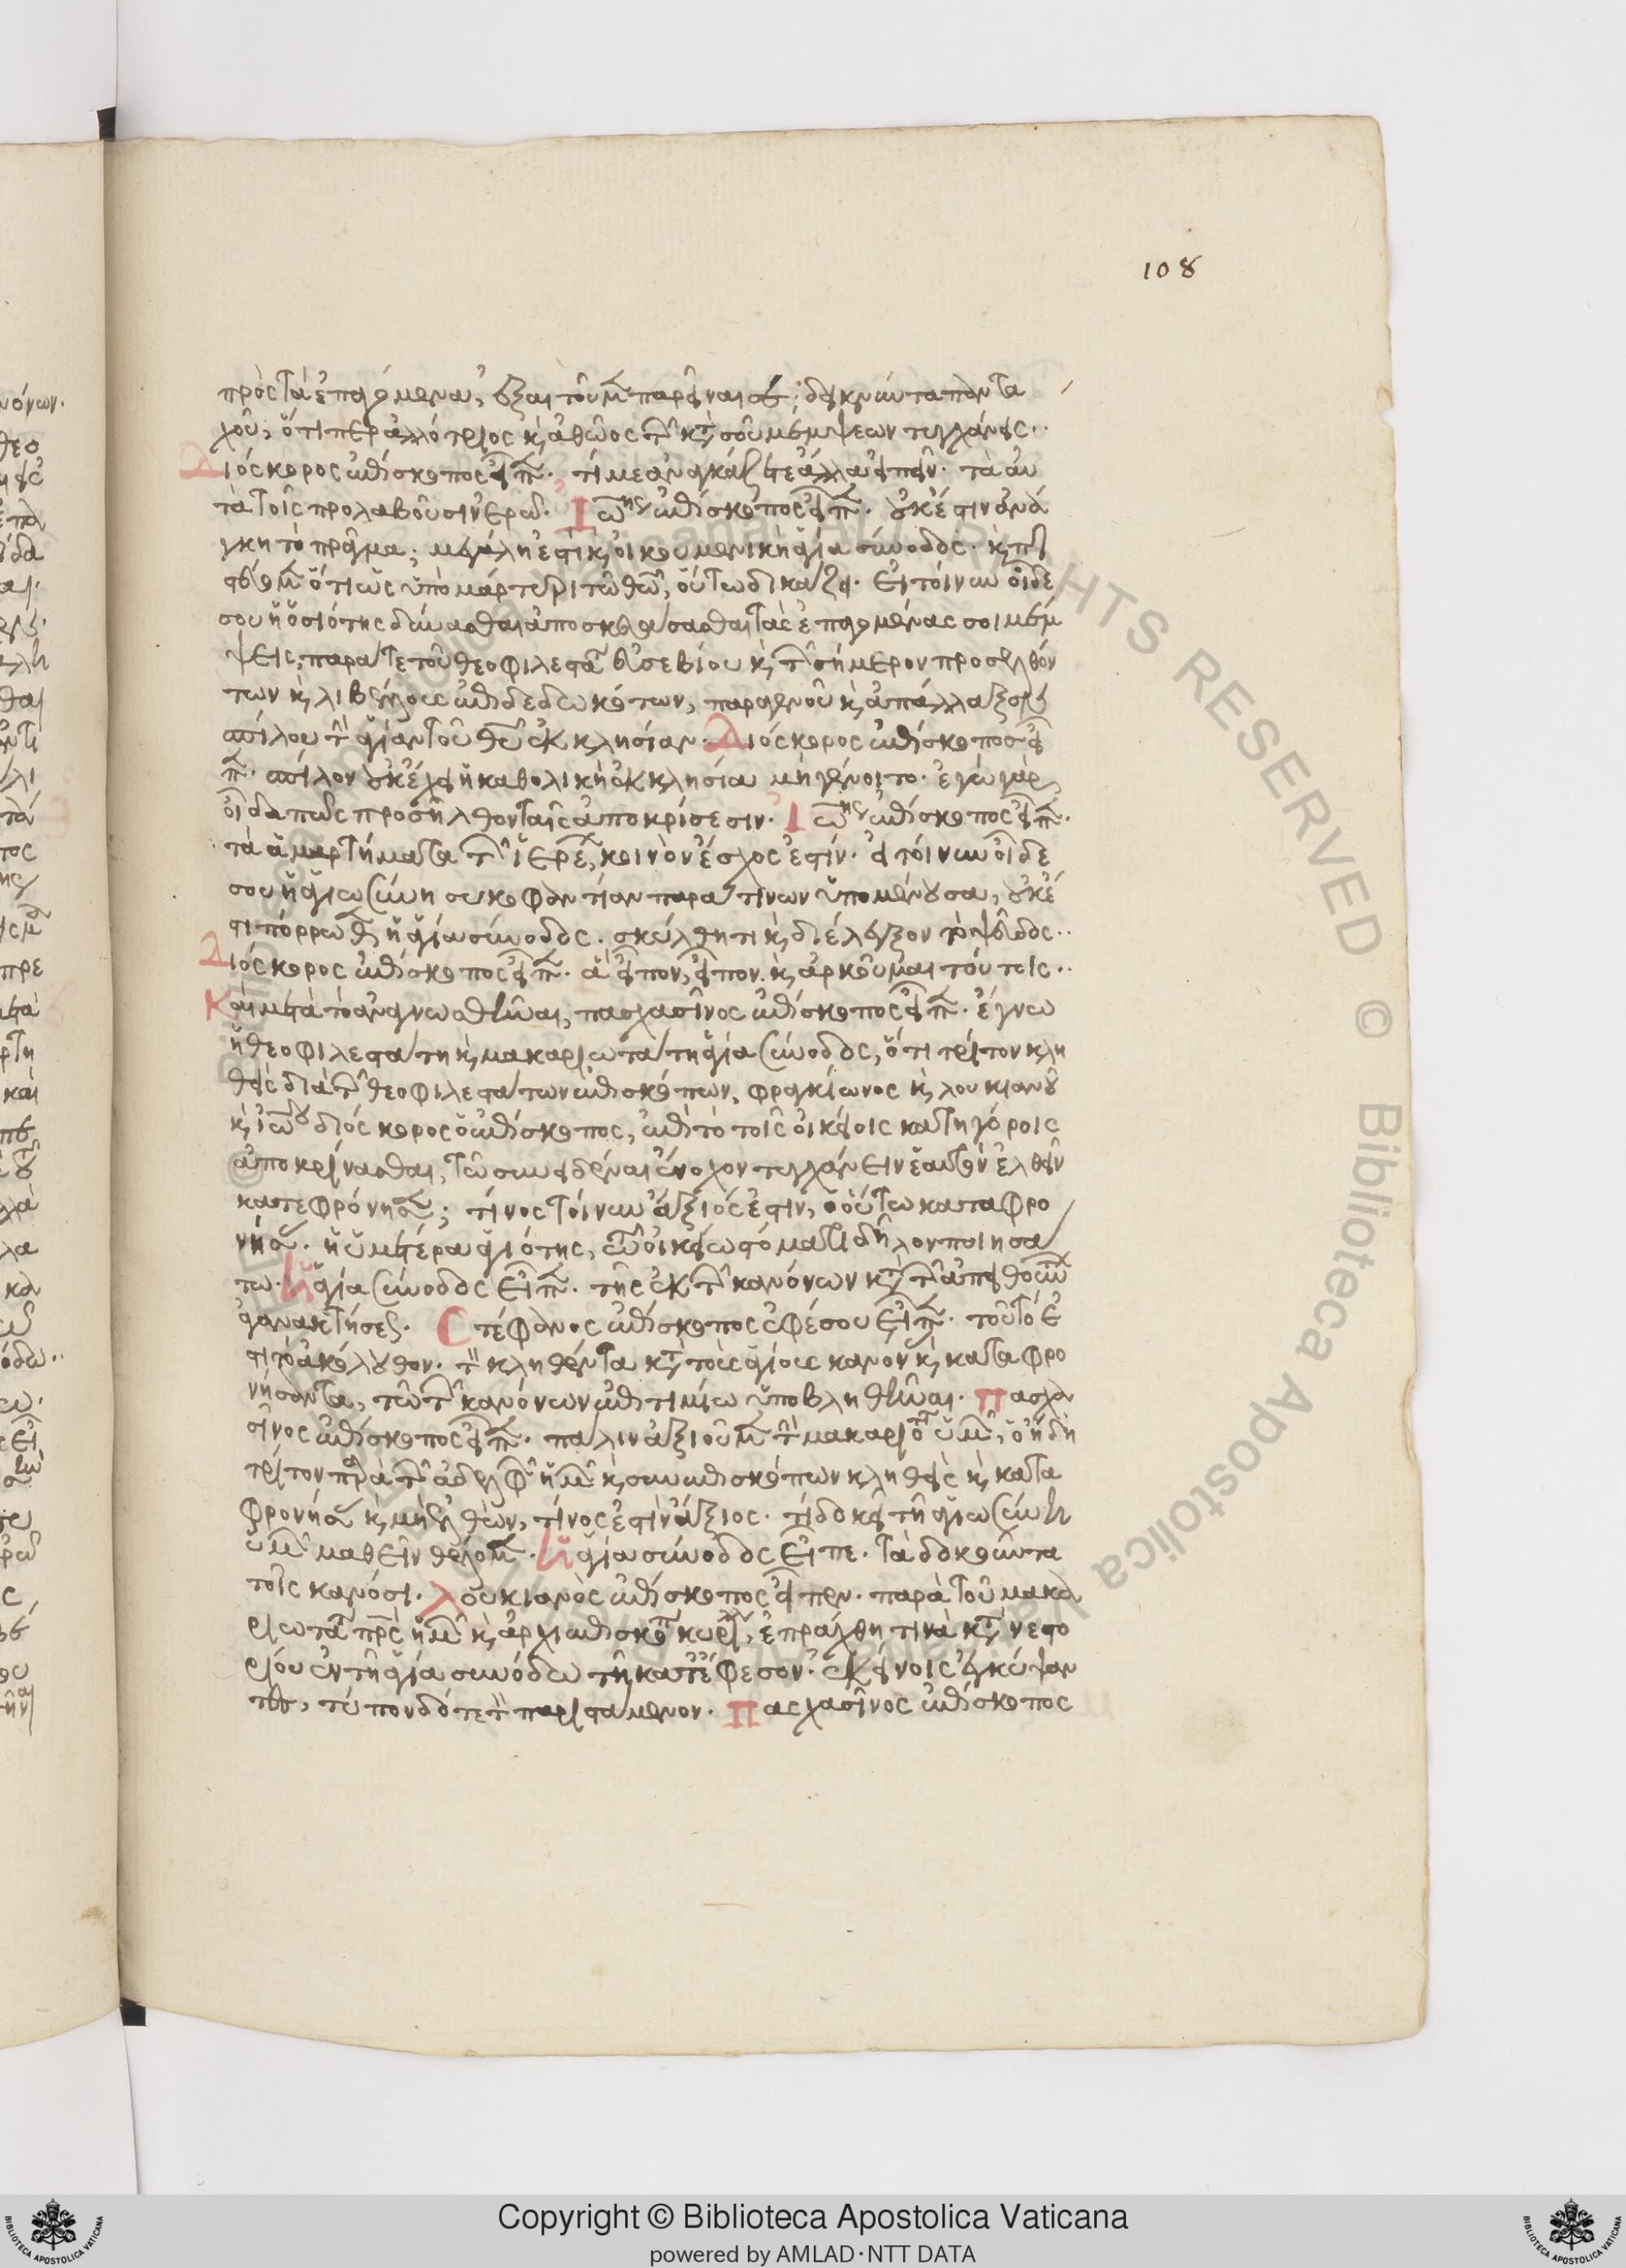 108
πρὸς τὰ ἐπαγόμενα, δεῖξαι τοῦ μὴ παρεῖναί σε; δεικνύντα πανταχοῦ
χοῦ, ὅτι περ ἀλλότριος κ(αὶ) ἀθῶος τῶν κατὰ σοῦ μέμψεων τυγχάνεις··
Διόσκορος ἐπίσκοπος εἶπεν· τί με ἀναγκάζετε ἄλλα εἰπεῖν· τὰ αὐ
τὰ τοῖς προλαβοῦσιν ἐρῶ· Ἰωάννης ἐπίσκοπος εἶπεν· οὐκ ἔστιν ἀνά
γκη τὸ πρᾶγμα· μεγάλη ἐστὶ κ(αὶ) οἰκουμενικὴ ἡ ἁγία σύνοδος· κ(αὶ) πι
στεύομεν ὅτι ὡς ὑπὸ μάρτυρι τῷ θεῷ, οὕτω δικάζει· εἰ τοίνυν οἶδε
σου ἡ ὁσιότης δύνασθαι ἀποσκευάσασθαι τὰς ἐπαγομένας σοι μέμ
ψεις, παρά τε τοῦ θεοφιλεστάτου εὐσεβίου κ(αὶ) τῶν σήμερον προσελθόν
των κ(αὶ) λιβέλλους ἐπιδεδωκότων, παραγενοῦ κ(αὶ) ἀπάλλαξον
σπίλου τὴν ἁγίαν τοῦ θεοῦ ἐκκλησίαν· Διόσκορος ἐπίσκοπος εἶ
πεν· σπίλον οὐκ ἔχει ἡ καθολικὴ ἐκκλησία μὴ γένοιτο· ἐγὼ γὰρ
οἶδα πῶς προσῆλθον ταῖς ἀποκρίσεσιν· Ἰωάννης ἐπίσκοπος εἶπεν·
τὰ ἁμαρτήματα τῶν ἱερέων, κοινὸν αἶσχος ἐστίν· εἰ τοίνυν οἶδε
σου ἡ ἁγιωσύνη συκοφαντίαν παρά τινων ὑπομένουσα, οὐκ ἔ
στι πόρρωθεν ἡ ἁγία σύνοδος· σκύλθητι κ(αὶ) διέλεγξον τὸ ψεῦδος··
Διόσκορος ἐπίσκοπος εἶπεν· ἃ εἶπον, εἶπον· κ(αὶ) ἀρκοῦμαι τούτοις··
Καὶ μετὰ τὸ ἀναγνωσθῆναι, πασχασῖνος ἐπίσκοπος εἶπεν· ἔγνω
ἡ θεοφιλεστάτη κ(αὶ) μακαριωτάτη ἁγία σύνοδος, ὅτι τρίτον κλη
θεὶς διὰ τῶν θεοφιλεστάτων ἐπισκόπων, φραγκίωνος κ(αὶ) λουκιανοῦ
κ(αὶ) ἰωάννου διόσκορος ὁ ἐπίσκοπος, ἐπὶ τὸ τοῖς οἰκείοις κατηγόροις
ἀποκρίνασθαι, τῷ συνειδέναι ἔνοχον τυγχάνειν ἑαυτὸν ἐλθεῖν
κατεφρόνησε· τίνος τοίνυν ἄξιός ἐστιν, ὁ οὕτω καταφρο
νήσας· ἡ ὑμετέρα ἁγιότης, τῷ οἰκείῳ στόματι δῆλον ποιησά
τω· ἡ ἁγία σύνοδος εἶπεν· τῆς ἐκ τῶν κανόνων κατὰ τῶν ἀπειθούντων
ἀγανακτήσεως· Στέφανος ἐπίσκοπος ἐφέσου εἶπεν· τοῦτό ἐ
στι τὸ ἀκόλουθον· τὸν κληθέντα κατὰ τοὺς ἁγίους κανόνας κ(αὶ) καταφρο
νήσαντα, τῷ τῶν κανόνων ἐπιτιμίῳ ὑποβληθῆναι· πασχα
σῖνος ἐπίσκοπος εἶπεν· πάλιν ἀξιοῦμεν τὴν μακαριότητα ὑμῶν, ὁ ἤδη
τρίτον παρὰ τῶν ἀδελφῶν ἡμῶν κ(αὶ) συνεπισκόπων κληθεὶς κ(αὶ) κατα
φρονήσας κ(αὶ) μὴ ἐλθών, τίνος ἐστὶν ἄξιος· τί δοκεῖ τῇ ἁγιωσύνῃ
ὑμῶν μαθεῖν θέλομεν· ἡ ἁγία σύνοδος εἶπε· τὰ δοκοῦντα
τοῖς κανόσι· λουκιανὸς ἐπίσκοπος εἶπεν· παρὰ τοῦ μακα
ριωτάτου πατρὸς ἡμῶν κ(αὶ) ἀρχιεπισκόπου κυρίλλου, ἐπράχθη τινὰ κατὰ νεστο
ρίου ἐν τῇ ἁγίᾳ συνόδῳ τῇ κατ' ἔφεσον· ἐκείνοις ἐγκύψαν
τες, τύπον δότε τὸν παριστάμενον· πασχασῖνος ἐπίσκοπος
Copyright © Biblioteca Apostolica Vaticana
powered by AMLAD·NTT DATA